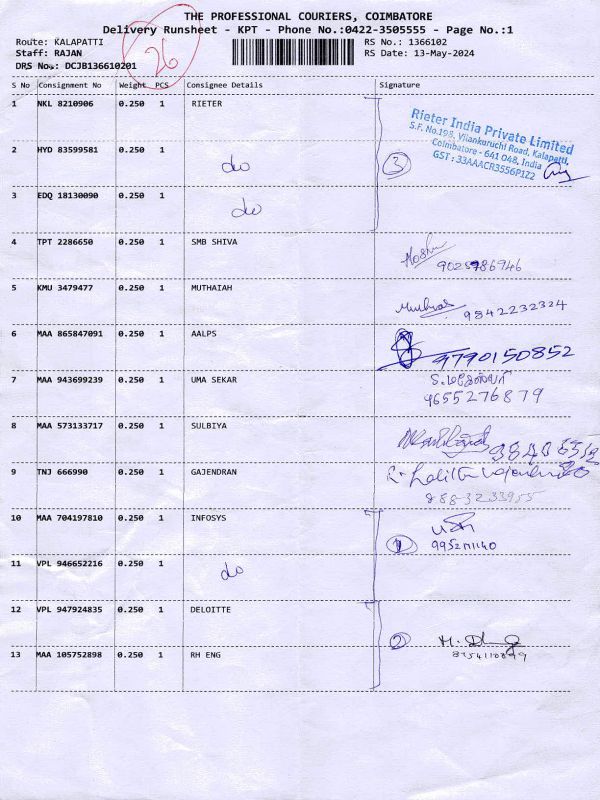 THE PROFESSIONAL COURIERS, COIMBATORE
Delivery Runsheet - KPT - Phone No.:0422-3505555 - Page No.:1
Route: KALAPATTI RS No.: 1366102
Staff: RAJAN RS Date: 13-May-2024
DRS No.: DCJB136610201
26
S No Consignment No Weight PCS Consignee Details Signature
1 NKL 8210906 0.250 1 RIETER
Rieter India Private Limited
S.F. No.198, Vilankuruchi Road, Kalapatti,
Coimbatore - 641 048, India
GST : 33AAACR3556P1Z2
2 HYD 83599581 0.250 1 do 3
3 EDQ 18130090 0.250 1 do
4 TPT 2286650 0.250 1 SMB SHIVA
5 KMU 3479477 0.250 1 MUTHAIAH 9842232324
6 MAA 865847091 0.250 1 AALPS 9790150852
7 MAA 943699239 0.250 1 UMA SEKAR
9655276879
8 MAA 573133717 0.250 1 SULBIYA
9 TNJ 666990 0.250 1 GAJENDRAN
8883233955
10 MAA 704197810 0.250 1 INFOSYS
1
11 VPL 946652216 0.250 1 do
12 VPL 947924835 0.250 1 DELOITTE
2
13 MAA 105752898 0.250 1 RH ENG